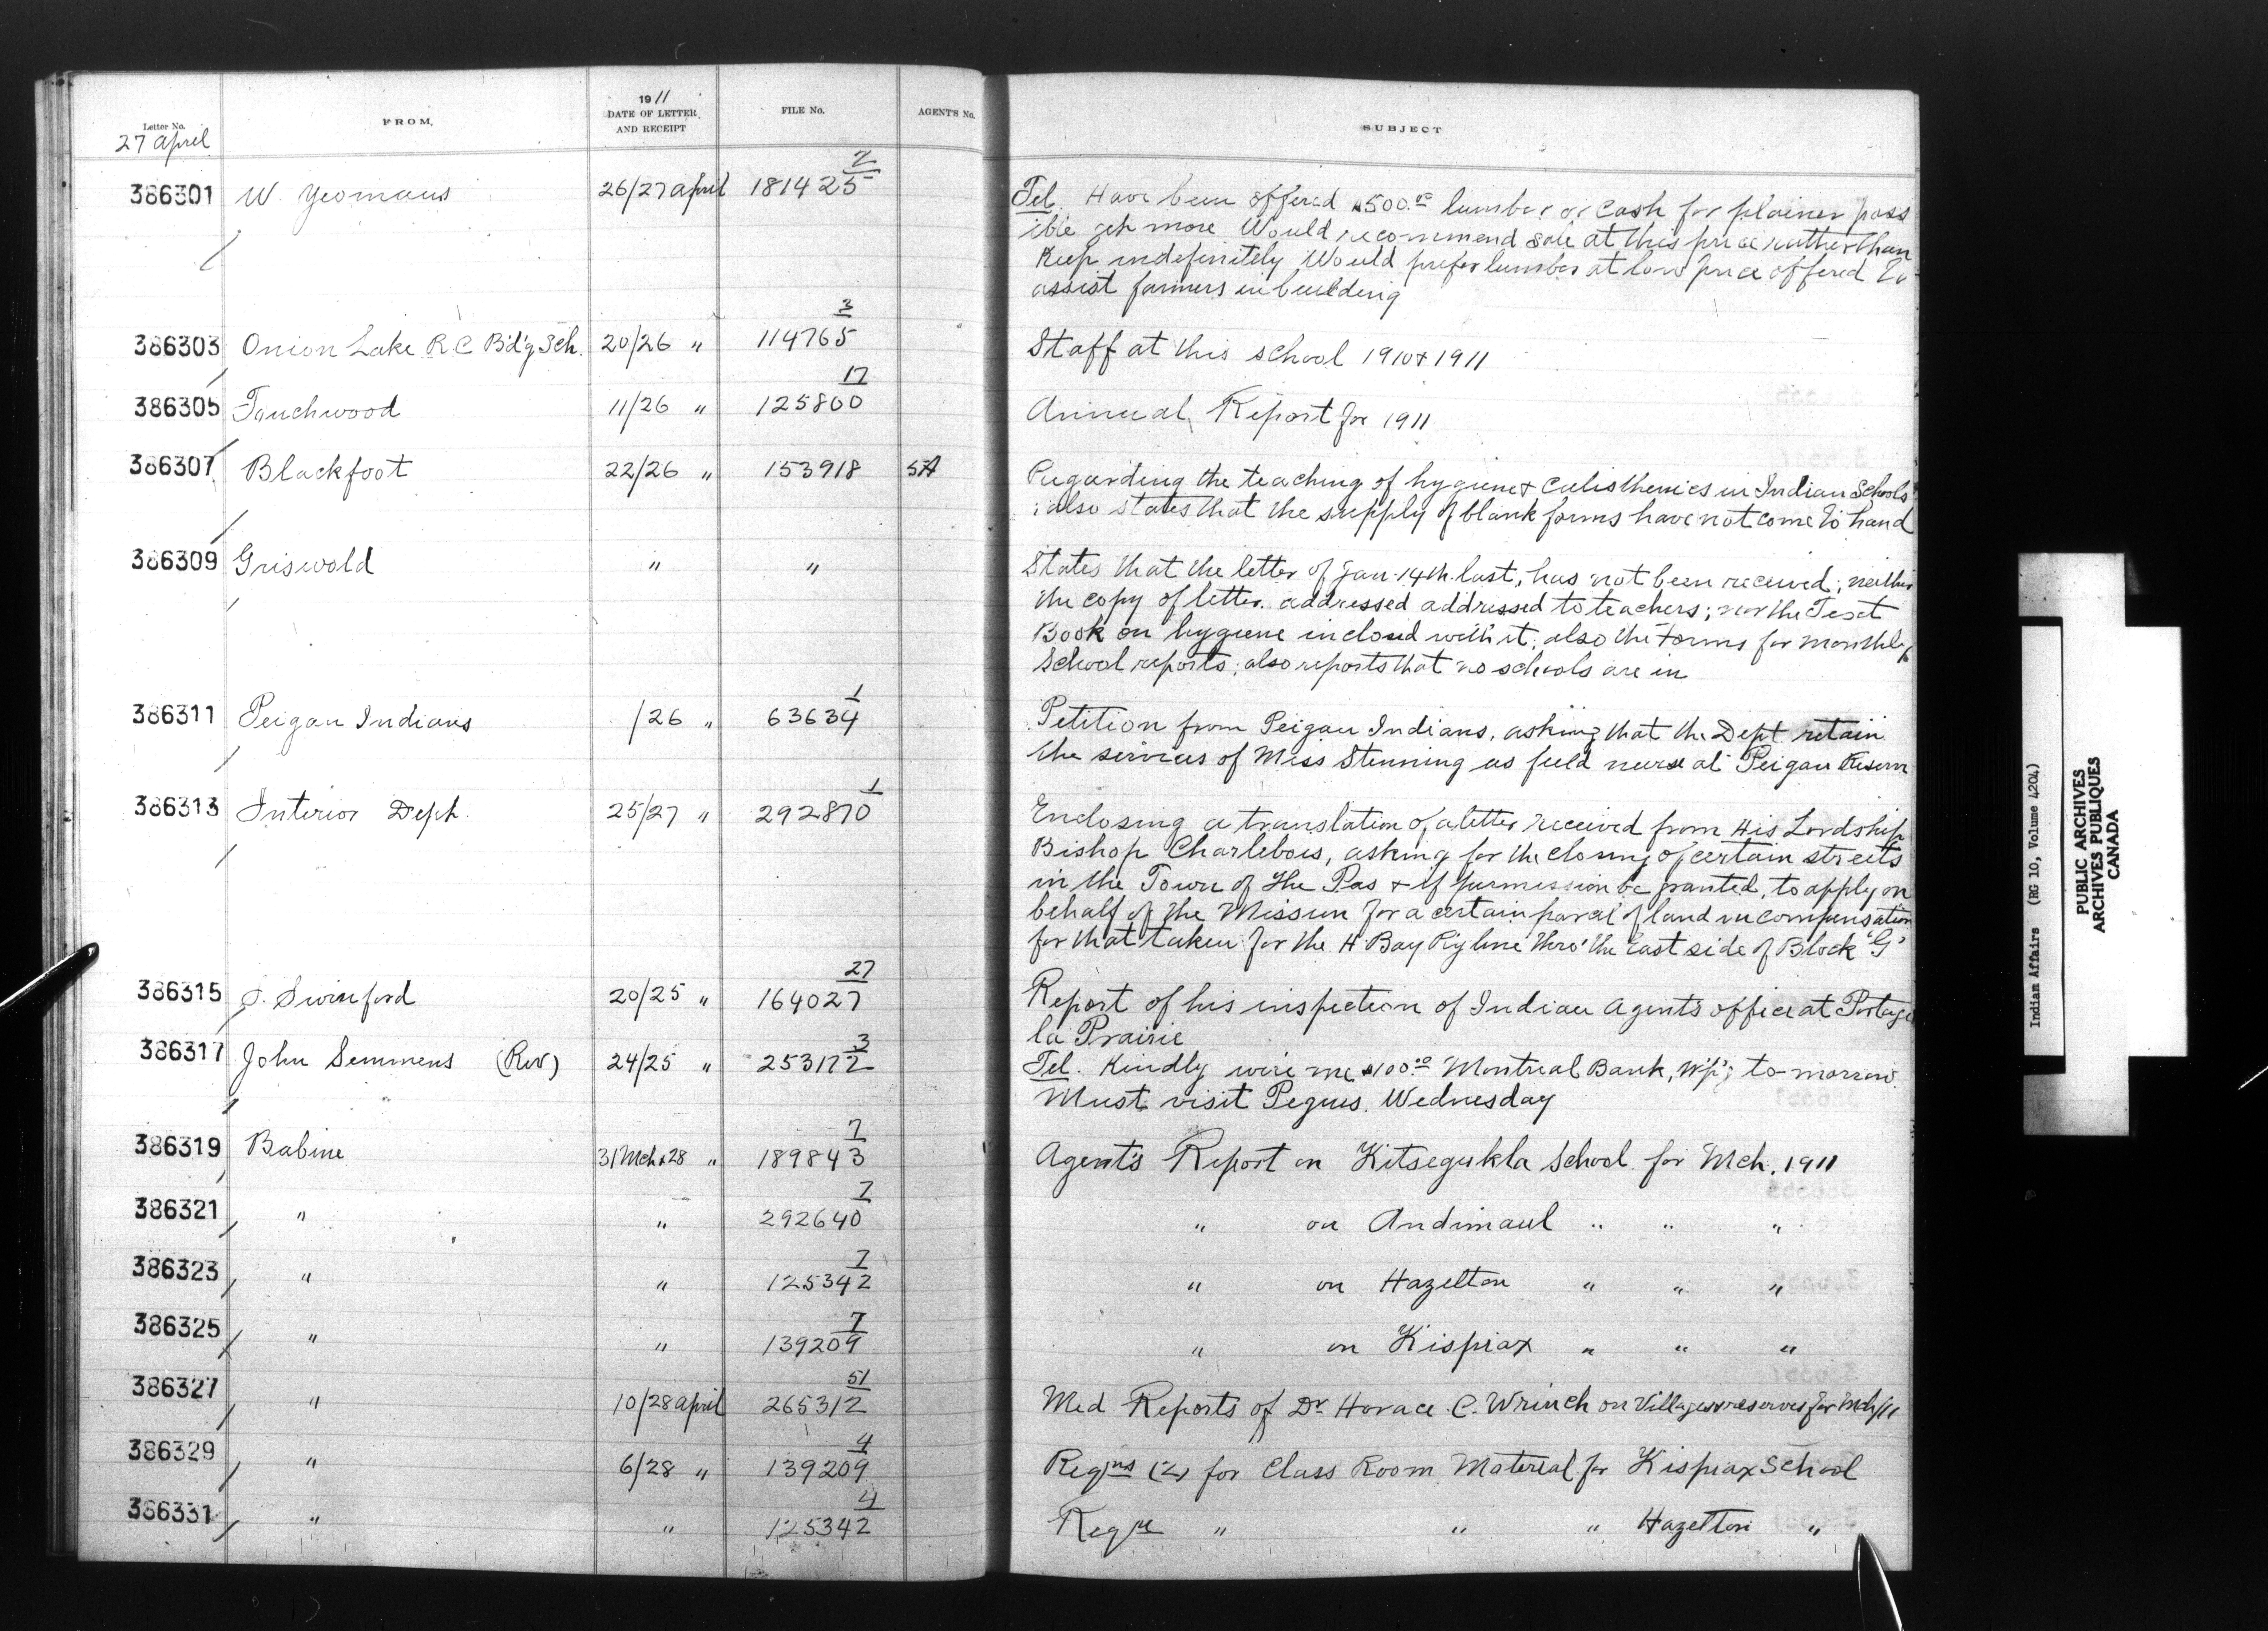 Letter No.
27 April
FROM.
1911
DATE OF LETTER
AND RECEIPT
FILE No.
AGENT'S No.
SUBJECT
386301 W. Yeomans 26/27 April 181425 2
Tel. Have been offered $500.00 lumber or cash for plainer poss
ible get more Would recommend sale at this price rather than
Keep indefinitely Would prefer lumber at low price offered to
assist farmers in building
386303 Onion Lake R.C. Bd'g Sch. 20/26 " 114765 3 Staff at this school 1910 & 1911
386305 Touchwood 11/26 " 125800 17 Annual Report for 1911
386307 Blackfoot 22/26 " 153918 5A Regarding the teaching of hygiene & calisthenics in Indian Schools
; also states that the supply of blank forms have not come to hand
386309 Griswold " " States that the letter of Jan. 14th last, has not been received; neither
the copy of letter addressed addressed to teachers; nor the Text
Book on hygiene inclosed with it; also the forms for monthly
School reports; also reports that no schools are in
386311 Peigan Indians /26 " 63634 1 Petition from Peigan Indians, asking that the Dept. retain
the services of Miss Stenning as field nurse at Peigan Reserve
386313 Interior Dept. 25/27 " 292870 1 Enclosing a translation of a letter received from His Lordship
Bishop Charlebois, asking for the closing of certain streets
in the Town of The Pas & if permission be granted, to apply on
behalf of the Mission for a certain parcel of land in compensation
for that taken for the H Bay Ry line thro' the East side of Block 'G'
386315 S. Swinford 20/25 " 164027 27 Report of his inspection of Indian Agents office at Portage
la Prairie
386317 John Semmens (Rev) 24/25 " 253172 3 Tel. Kindly wire me $100.00 Montreal Bank, W'p'g to-morrow.
Must visit Peguis. Wednesday
386319 Babine 31 Mch & 28 " 189843 7 Agent's Report on Kitsegukla School for Mch. 1911
386321 " " 292640 7 " on Andimaul " " "
386323 " " 125342 7 " on Hazelton " " "
386325 " " 139209 7 " on Kispiax " " "
386327 " 10/28 April 265312 51 Med Reports of Dr Horace C. Wrinch on Villages & reserves for Mch/11
386329 " 6/28 " 139209 4 Reqns (2) for Class Room Material for Kispiax School
386331 " " 125342 4 Reqn " " " Hazelton "
Indian Affairs (RG 10, Volume 4204)
PUBLIC ARCHIVES
ARCHIVES PUBLIQUES
CANADA